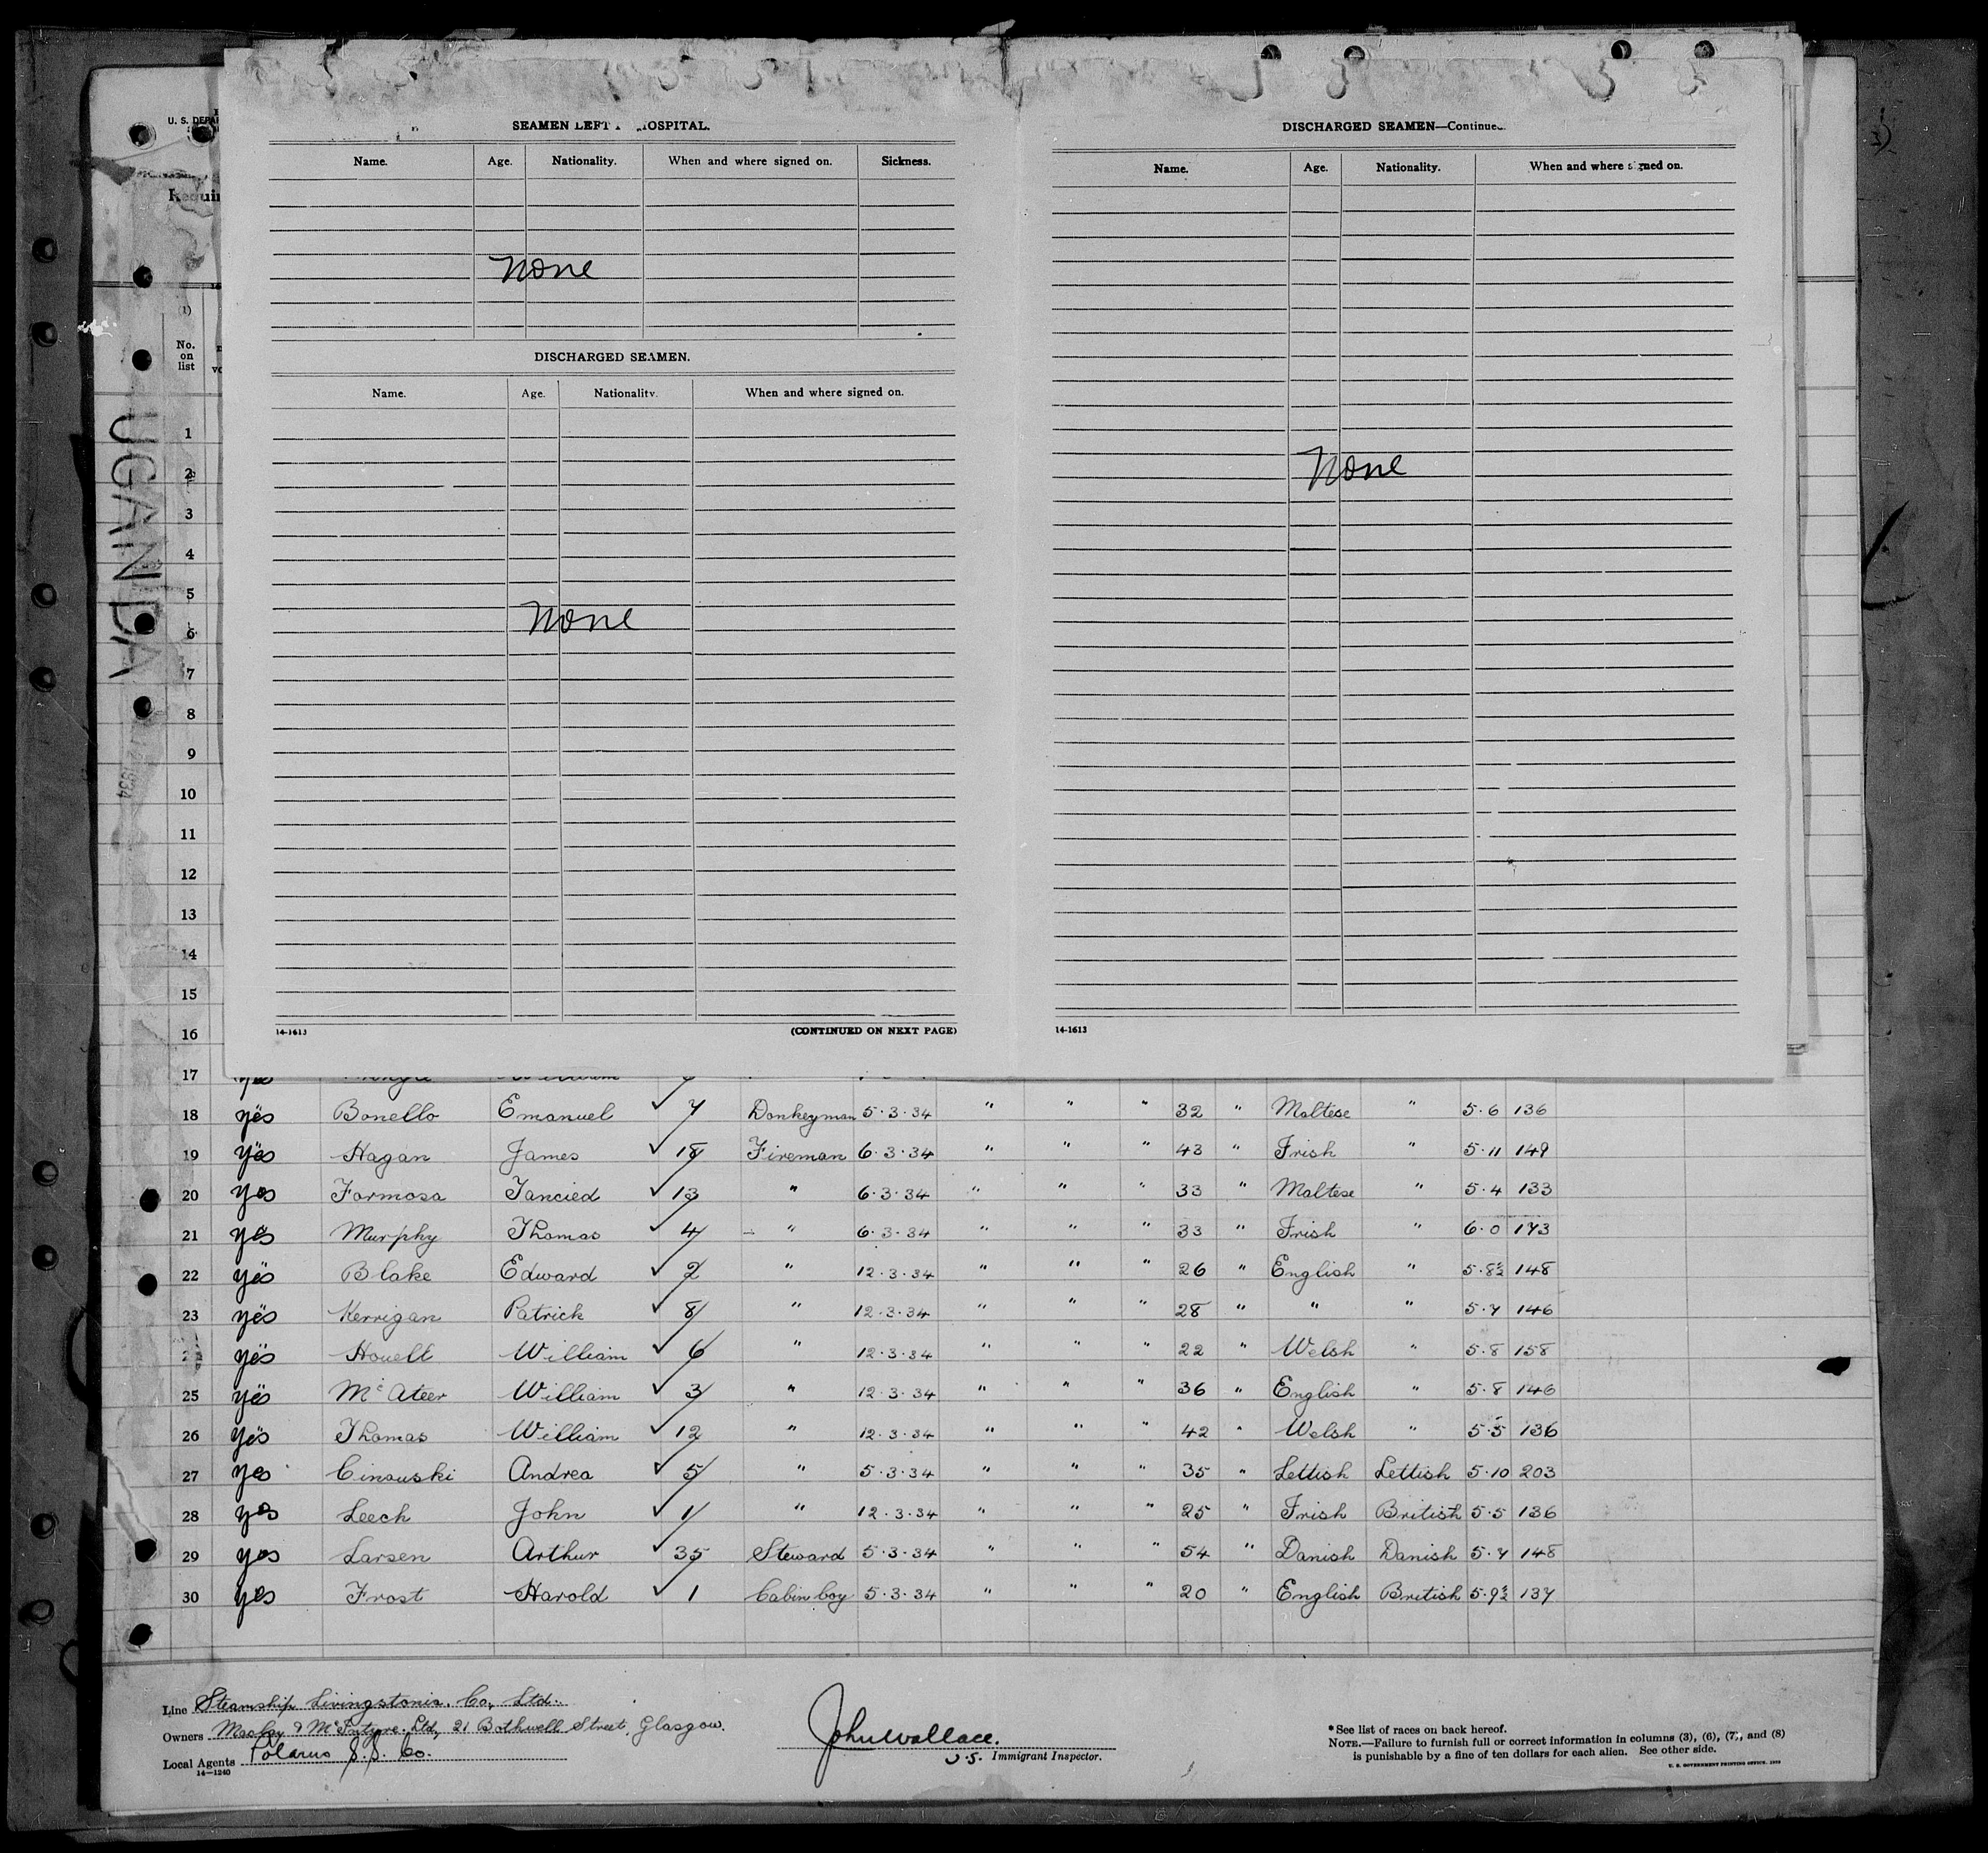 U. S. DEPA
Requi
SEAMEN LEFT OSPITAL.
Name. Age. Nationality. When and where signed on. Sickness.
None
DISCHARGED SEAMEN.
Name. Age. Nationality. When and where signed on.
None
14-1613 (CONTINUED ON NEXT PAGE)
DISCHARGED SEAMEN—Continue
Name. Age. Nationality. When and where signed on.
None
14-1613
UGANDA
1934
(1)
No.
on
list
1
2
3
4
5
6
7
8
9
10
11
12
13
14
15
16
17 yes William
18 yes Bonello Emanuel ✓ 7 Donkeyman 5.3.34 " " " 32 " Maltese " 5.6 136
19 yes Hagan James ✓ 18 Fireman 6.3.34 " " " 43 " Irish " 5.11 149
20 yes Formosa Tancied ✓ 13 " 6.3.34 " " " 33 " Maltese " 5.4 133
21 yes Murphy Thomas ✓ 4 " 6.3.34 " " " 33 " Irish " 6.0 173
22 yes Blake Edward ✓ 2 " 12.3.34 " " " 26 " English " 5.8½ 148
23 yes Kerrigan Patrick ✓ 8 " 12.3.34 " " " 28 " " " 5.7 146
yes Howell William ✓ 6 " 12.3.34 " " " 22 " Welsh " 5.8 158
25 yes McAteer William ✓ 3 " 12.3.34 " " " 36 " English " 5.8 146
26 yes Thomas William ✓ 12 " 12.3.34 " " " 42 " Welsh " 5.5 136
27 yes Cinouski Andrea ✓ 5 " 5.3.34 " " " 35 " Lettish Lettish 5.10 203
28 yes Leech John ✓ 1 " 12.3.34 " " " 25 " Irish British 5.5 136
29 yes Larsen Arthur ✓ 35 Steward 5.3.34 " " " 54 " Danish Danish 5.7 148
30 yes Frost Harold ✓ 1 Cabin boy 5.3.34 " " " 20 " English British 5.9½ 137
Line Steamship Livingstonia. Co, Ltd.
Owners Maclay & McIntyre. Ltd, 21 Bothwell Street, Glasgow.
Local Agents Polarus S.S. Co.
14—1240
John Wallace.
U.S. Immigrant Inspector.
*See list of races on back hereof.
NOTE.—Failure to furnish full or correct information in columns (3), (6), (7), and (8)
is punishable by a fine of ten dollars for each alien. See other side.
U. S. GOVERNMENT PRINTING OFFICE